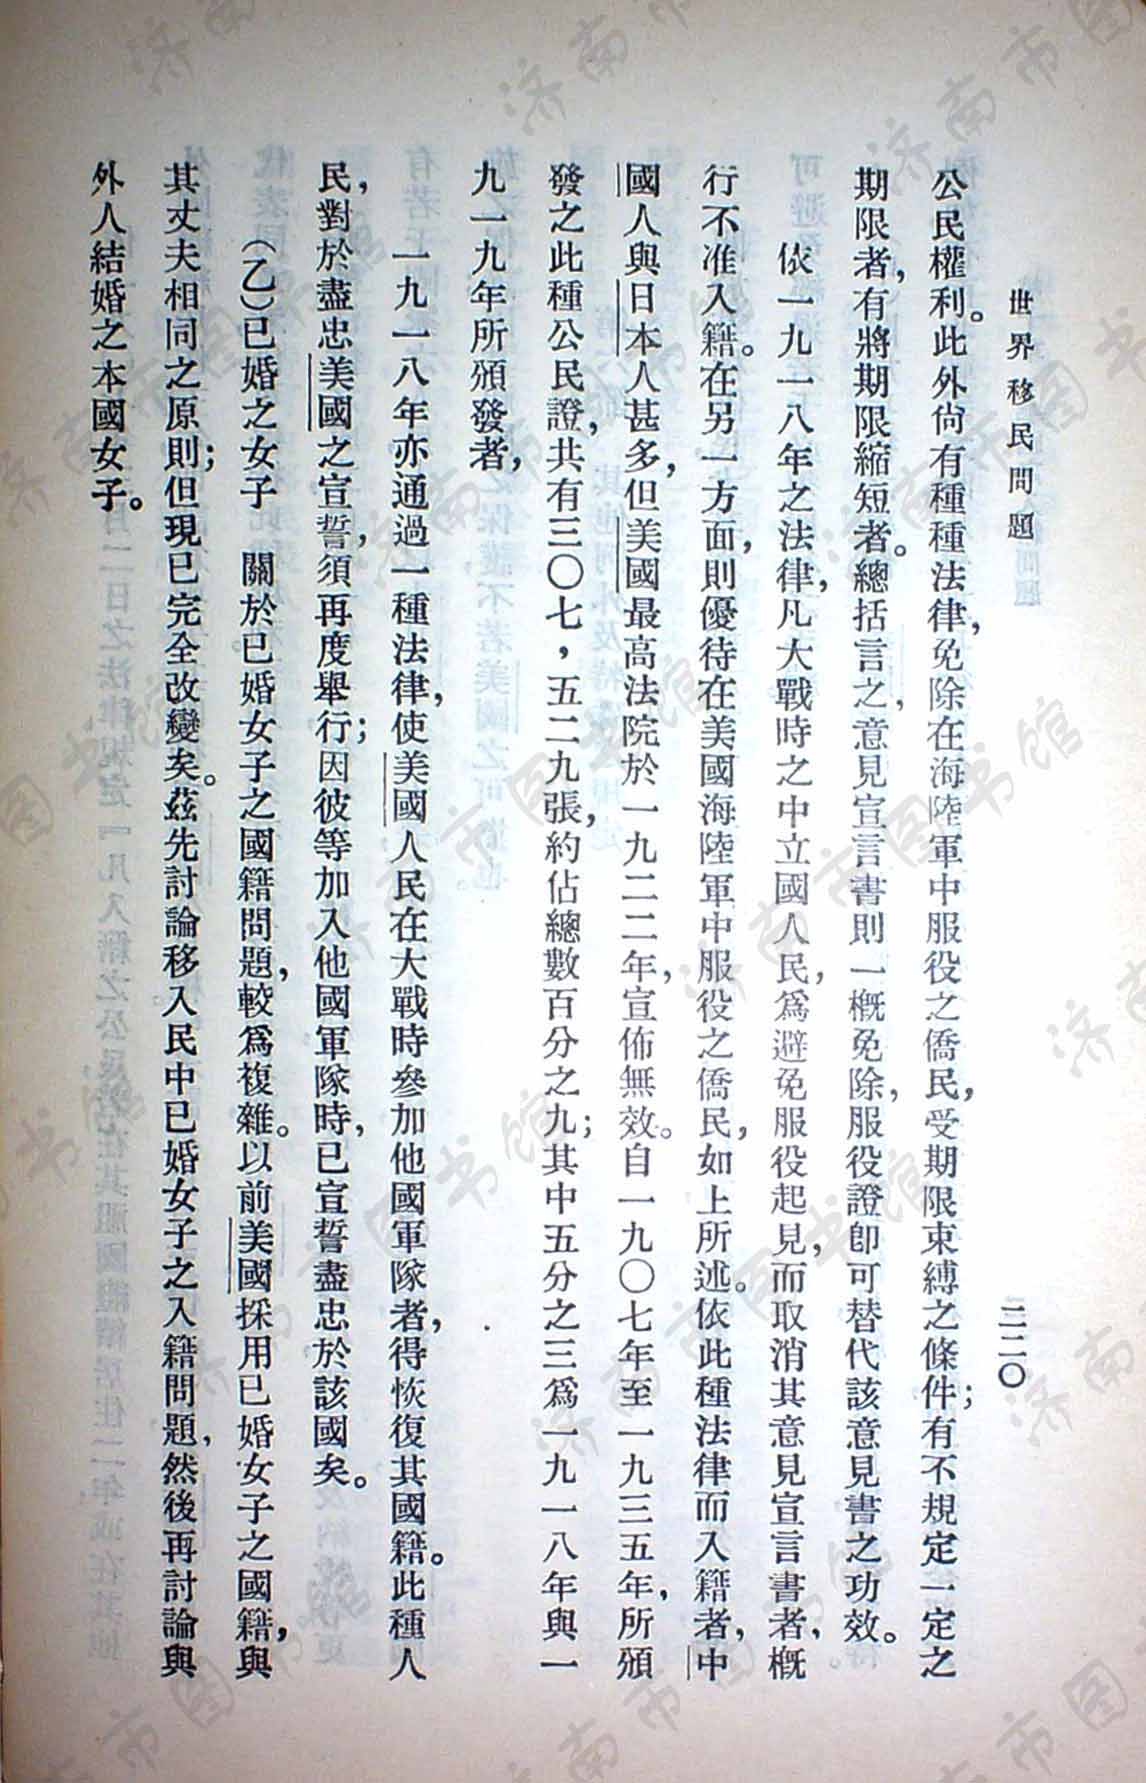 世界移民問題
二二〇
公民權利。此外尙有種種法律,免除在海陸軍中服役之僑民,受期限束縛之條件;有不規定一定之
期限者,有將期限縮短者。總括言之,意見宣言書則一概免除,服役證卽可替代該意見書之功效。
依一九一八年之法律,凡大戰時之中立國人民,爲避免服役起見,而取消其意見宣言書者,概
行不准入籍。在另一方面,則優待在美國海陸軍中服役之僑民,如上所述。依此種法律而入籍者,中
國人與日本人甚多,但美國最高法院於一九二二年,宣佈無效。自一九〇七年至一九三五年,所頒
發之此種公民證,共有三〇七,五二九張,約佔總數百分之九;其中五分之三爲一九一八年與一
九一九年所頒發者,
一九一八年亦通過一種法律,使美國人民在大戰時參加他國軍隊者,得恢復其國籍。此種人
民,對於盡忠美國之宣誓,須再度舉行;因彼等加入他國軍隊時,已宣誓盡忠於該國矣。
(乙)已婚之女子 關於已婚女子之國籍問題,較爲複雜。以前美國採用已婚女子之國籍,與
其丈夫相同之原則;但現已完全改變矣。茲先討論移入民中已婚女子之入籍問題,然後再討論與
外人結婚之本國女子。
济南市图书馆